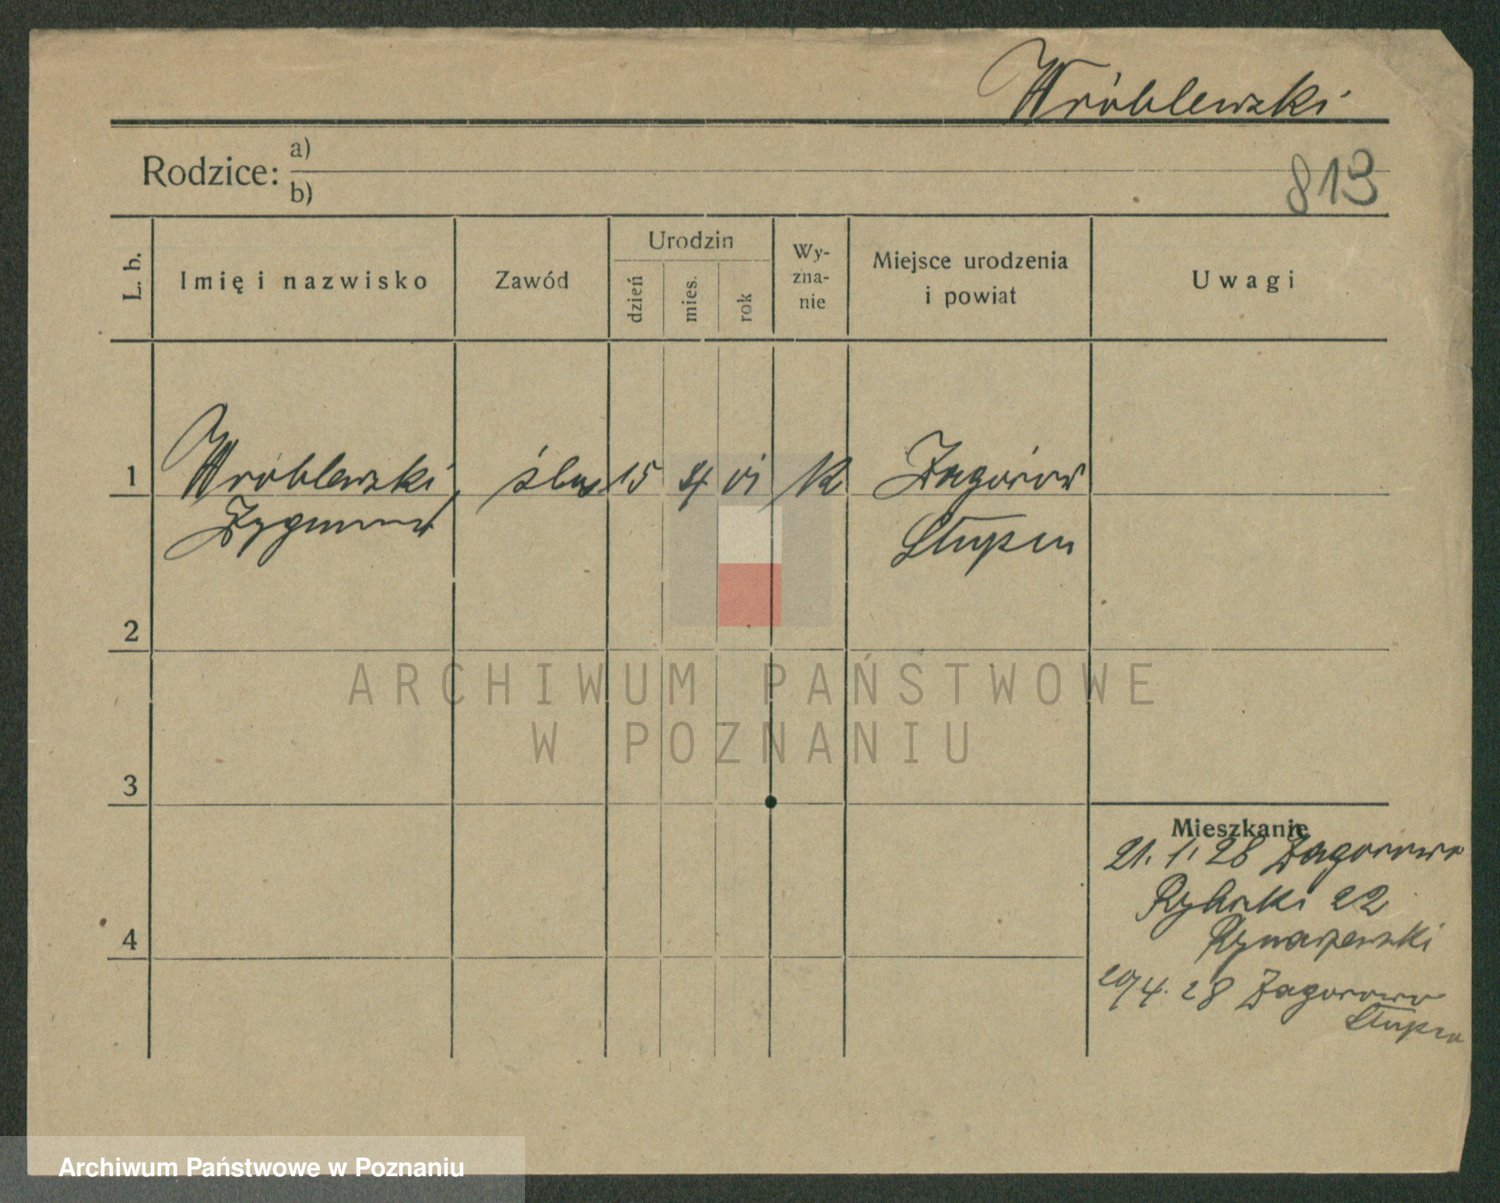 Wróblewski
Rodzice: a)
b)
813
L. b.
Imię i nazwisko
Zawód
Urodzin
dzień
mies.
rok
Wy-
zna-
nie
Miejsce urodzenia
i powiat
Uwagi
1
Wróblewski
Zygmunt
ślus
15
4
01
K
Zagórów
Słupca
2
3
4
Mieszkanie
21. 1. 28 Zagorowa
Rybaki 22
20/4. 28 Zagorowa
Słupca
ARCHIWUM PAŃSTWOWE
W POZNANIU
Archiwum Państwowe w Poznaniu